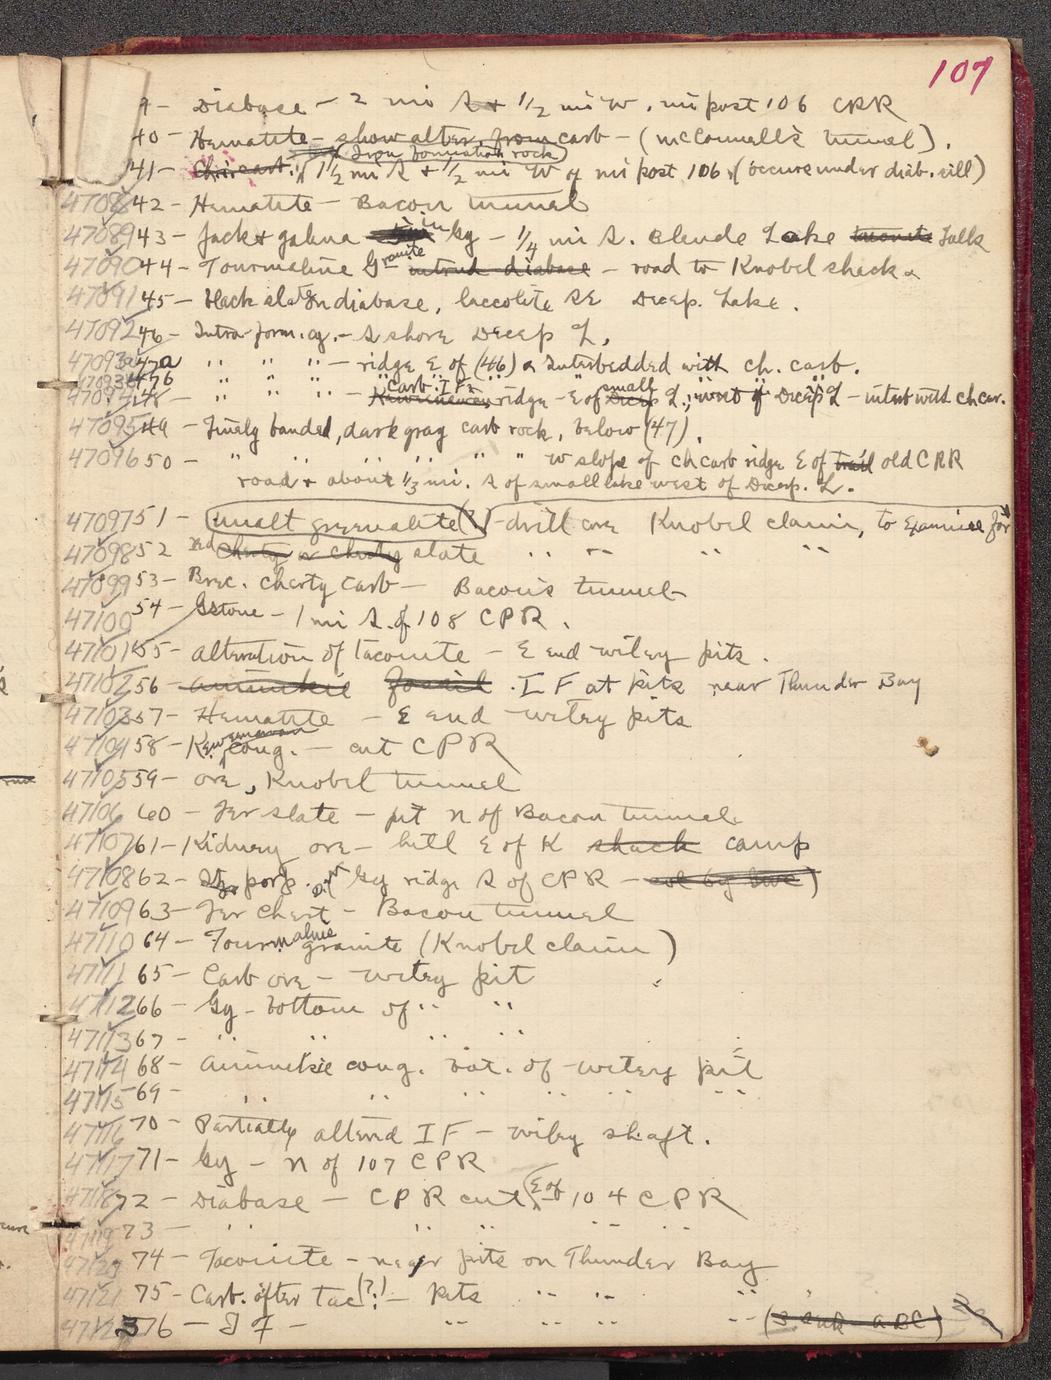 107
9- Diabase - 2 mi S + 1/2 mi W. mi post 106 CPR
40- Hematite - show alter. from carb - (McConnell's tunnel).
(Iron formation rock)
41- 1 1/2 mi S + 1/2 mi W of mi post 106 (occurs under diab. sill)
47088 42- Hematite - Bacon tunnel
47089 43- Jack + galena in Gy - 1/4 mi S. Blende Lake talk
47090 44- Tourmaline Granite intrud diabase - road to Knobel shack.
47091 45- black slate in diabase, laccolite SE Decep. Lake.
47092 46- Intra-form. cg. - S shore Decep L.
47093a 47a " " " - ridge E of (46). Interbedded with ch. carb.
47093b 47b " " " " " " "
47094 48- " " " - Carb. I F ridge - E of small L., west of Decep L - interb with ch car.
47095 49- Finely banded, dark gray carb rock, below (47).
47096 50- " " " " " " W slope of ch carb ridge E of trail old CPR
road + about 1/3 mi. S of small lake west of Decep. L.
47097 51- (unalt greenalite (?)) - drill core Knobel claim, to examine for
47098 52 red cherty or cherty slate " " " "
47099 53- Brec. cherty carb - Bacon's tunnel
47100 54- Gstone - 1 mi S. of 108 CPR.
47101 55- Alteration of Taconite - E end Wiley pits.
47102 56- Animikie fossil. I F at pits near Thunder Bay
47103 57- Hematite - E end Wiley pits
47104 58- Keweenawan cong. - cut CPR
47105 59- ore, Knobel tunnel
47106 60- Fer slate - pit N of Bacon tunnel.
47107 61- Kidney ore - hill E of K shack camp
47108 62- porp. Gy ridge S of CPR -
47109 63- Fer Chert - Bacon tunnel
47110 64- Tourmaline granite (Knobel claim)
47111 65- Carb ore - Wiley pit
47112 66- Gy - bottom of " "
47113 67- " " " "
47114 68- Animikie cong. bot. of Wiley pit
47115 69- " " " " " "
47116 70- Partially altered I F - Wiley shaft.
47117 71- Gy - N of 107 CPR
47118 72- Diabase - CPR cut E of 104 CPR
47119 73- " " " " "
47120 74- Taconite - near pits on Thunder Bay
47121 75- Carb. after tac (?) - pits " " "
47122 376- I F - " " " " (3 sub - A B C)